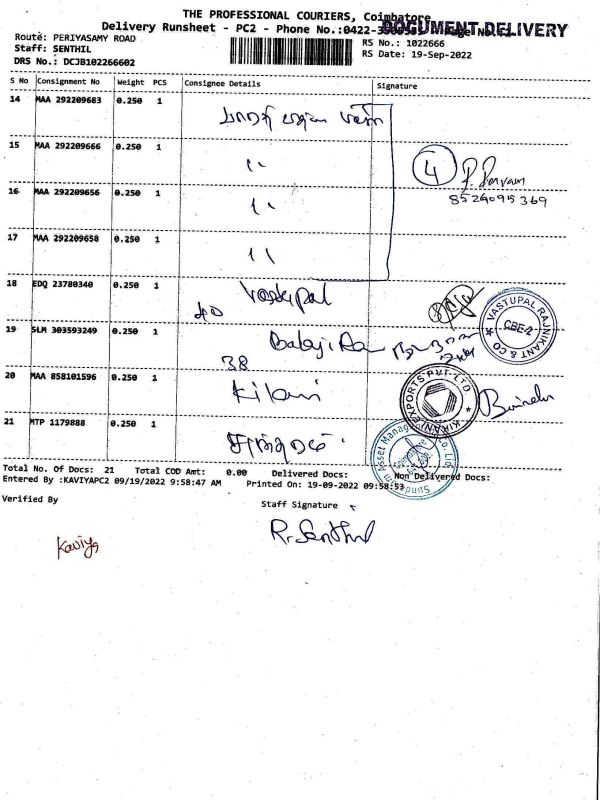 THE PROFESSIONAL COURIERS, Coimbatore
Delivery Runsheet - PC2 - Phone No.:0422-
DOCUMENT DELIVERY
Route: PERIYASAMY ROAD
Staff: SENTHIL
DRS No.: DCJB102266602
RS No.: 1022666
RS Date: 19-Sep-2022
S No Consignment No Weight PCS Consignee Details Signature
14 MAA 292209683 0.250 1
15 MAA 292209666 0.250 1 ''
4
16 MAA 292209656 0.250 1 ''
8529095369
17 MAA 292209658 0.250 1 ''
18 EDQ 23780340 0.250 1 Vastupal
VASTUPAL RAJNIKANT & CO
CBE-2
19 SLM 303593249 0.250 1 Balaji
38
20 MAA 858101596 0.250 1 Kilani
KIRAN EXPORTS PVT LTD
21 MTP 1179888 0.250 1
Total No. Of Docs: 21 Total COD Amt: 0.00 Delivered Docs: Non Delivered Docs:
Entered By :KAVIYAPC2 09/19/2022 9:58:47 AM Printed On: 19-09-2022 09:58:53
Verified By Staff Signature
Kaviya R. Senthil